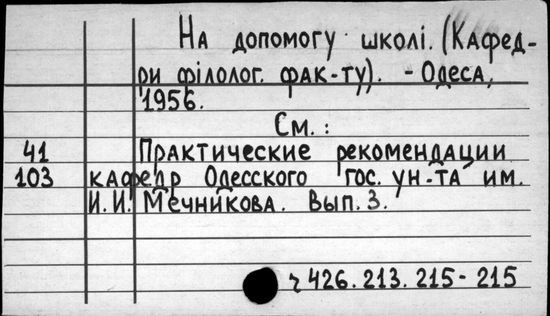 На допомогу школі. (Кафед-
ри філолог. фак-ту). - Одеса,
1956.
См.:
41 Практические рекомендации
103 кафедр Одесского гос. ун-та им.
И.И. Мечникова. Вып. 3.
ч 426.213.215-215